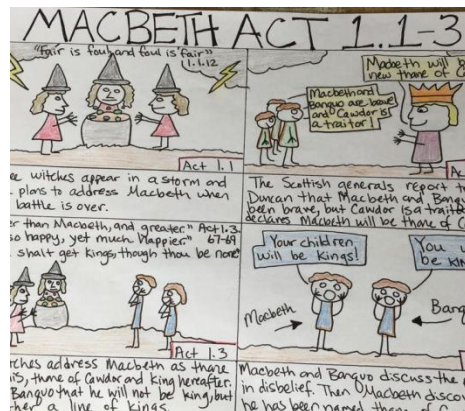 MACBETH ACT 1.1-3
"Fair is foul, and foul is fair"
1.1.12
Act 1.1
ee witches appear in a storm and
plans to address Macbeth when
battle is over.
Macbeth will b
new thane of C
Macbeth and
Banquo are brave
and Cawdor is
a traitor!
Ac
The Scottish generals report t
Duncan that Macbeth and Banqu
been brave, but Cawdor is a traito
declares Macbeth will be thane of C
er than Macbeth, and greater" Act 1.3.
so happy, yet much happier" 67-69
shalt get kings, though thou be none"
Act 1.3
ches address Macbeth as thane
is, thane of Cawdor and King hereafter.
Banquo that he will not be king, but
her a line of kings.
Your children
will be kings!
You
be KIN
Macbeth
Banq
Macbeth and Banquo discuss the
in disbelief. Then Macbeth disco
he has been named thane of C